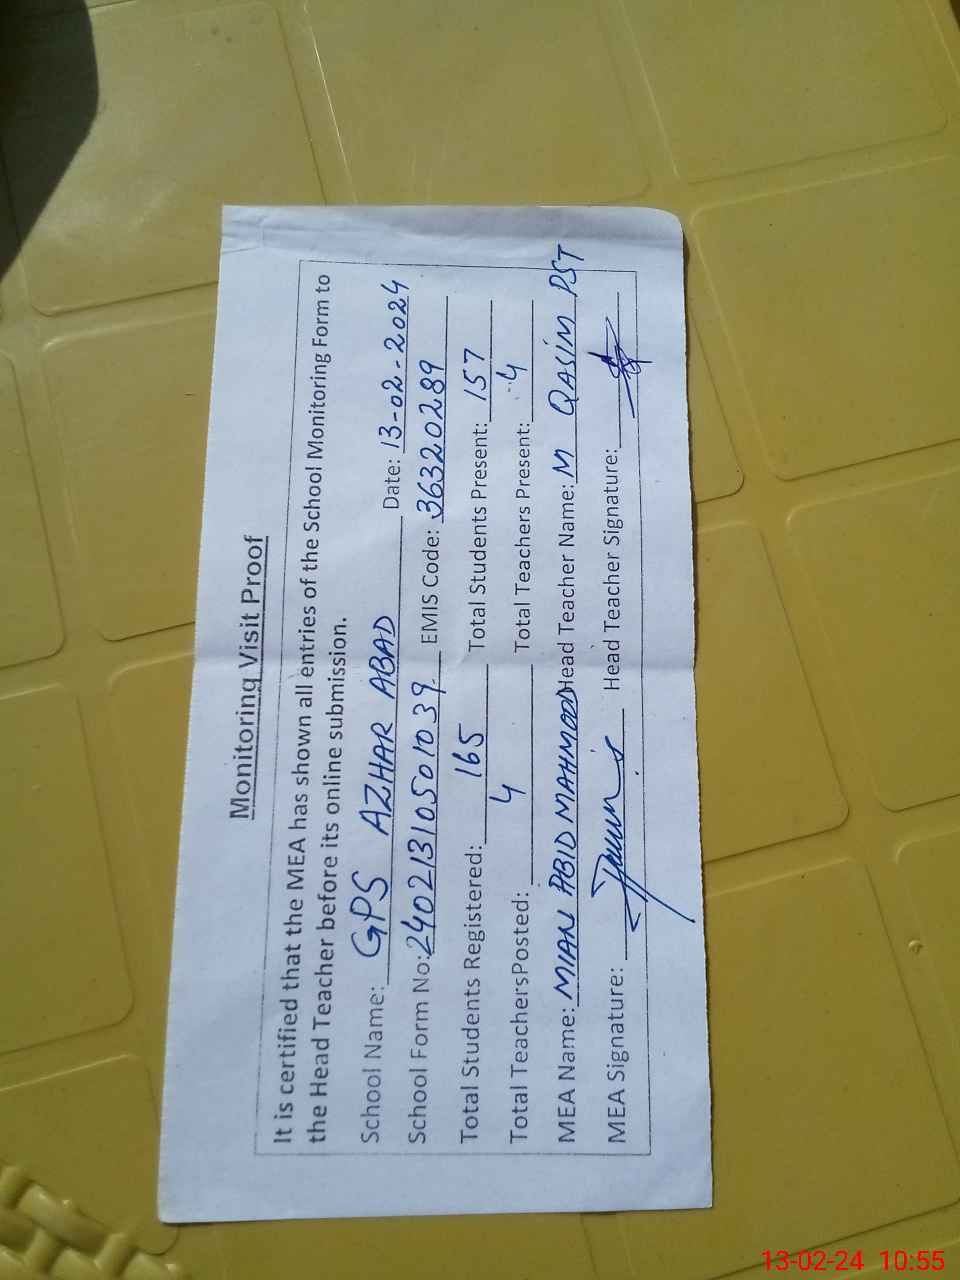 Monitoring Visit Proof
It is certified that the MEA has shown all entries of the School Monitoring Form to
the Head Teacher before its online submission.
School Name: GPS AZHAR ABAD Date: 13-02-2024
School Form No: 2402131050 1039 EMIS Code: 36320289
Total Students Registered: 165 Total Students Present: 157
Total Teachers Posted: 4 Total Teachers Present: 4
MEA Name: MIAN ABID MAHMOOD Head Teacher Name: M QASIM PST
MEA Signature: Head Teacher Signature:
13-02-24 10:55